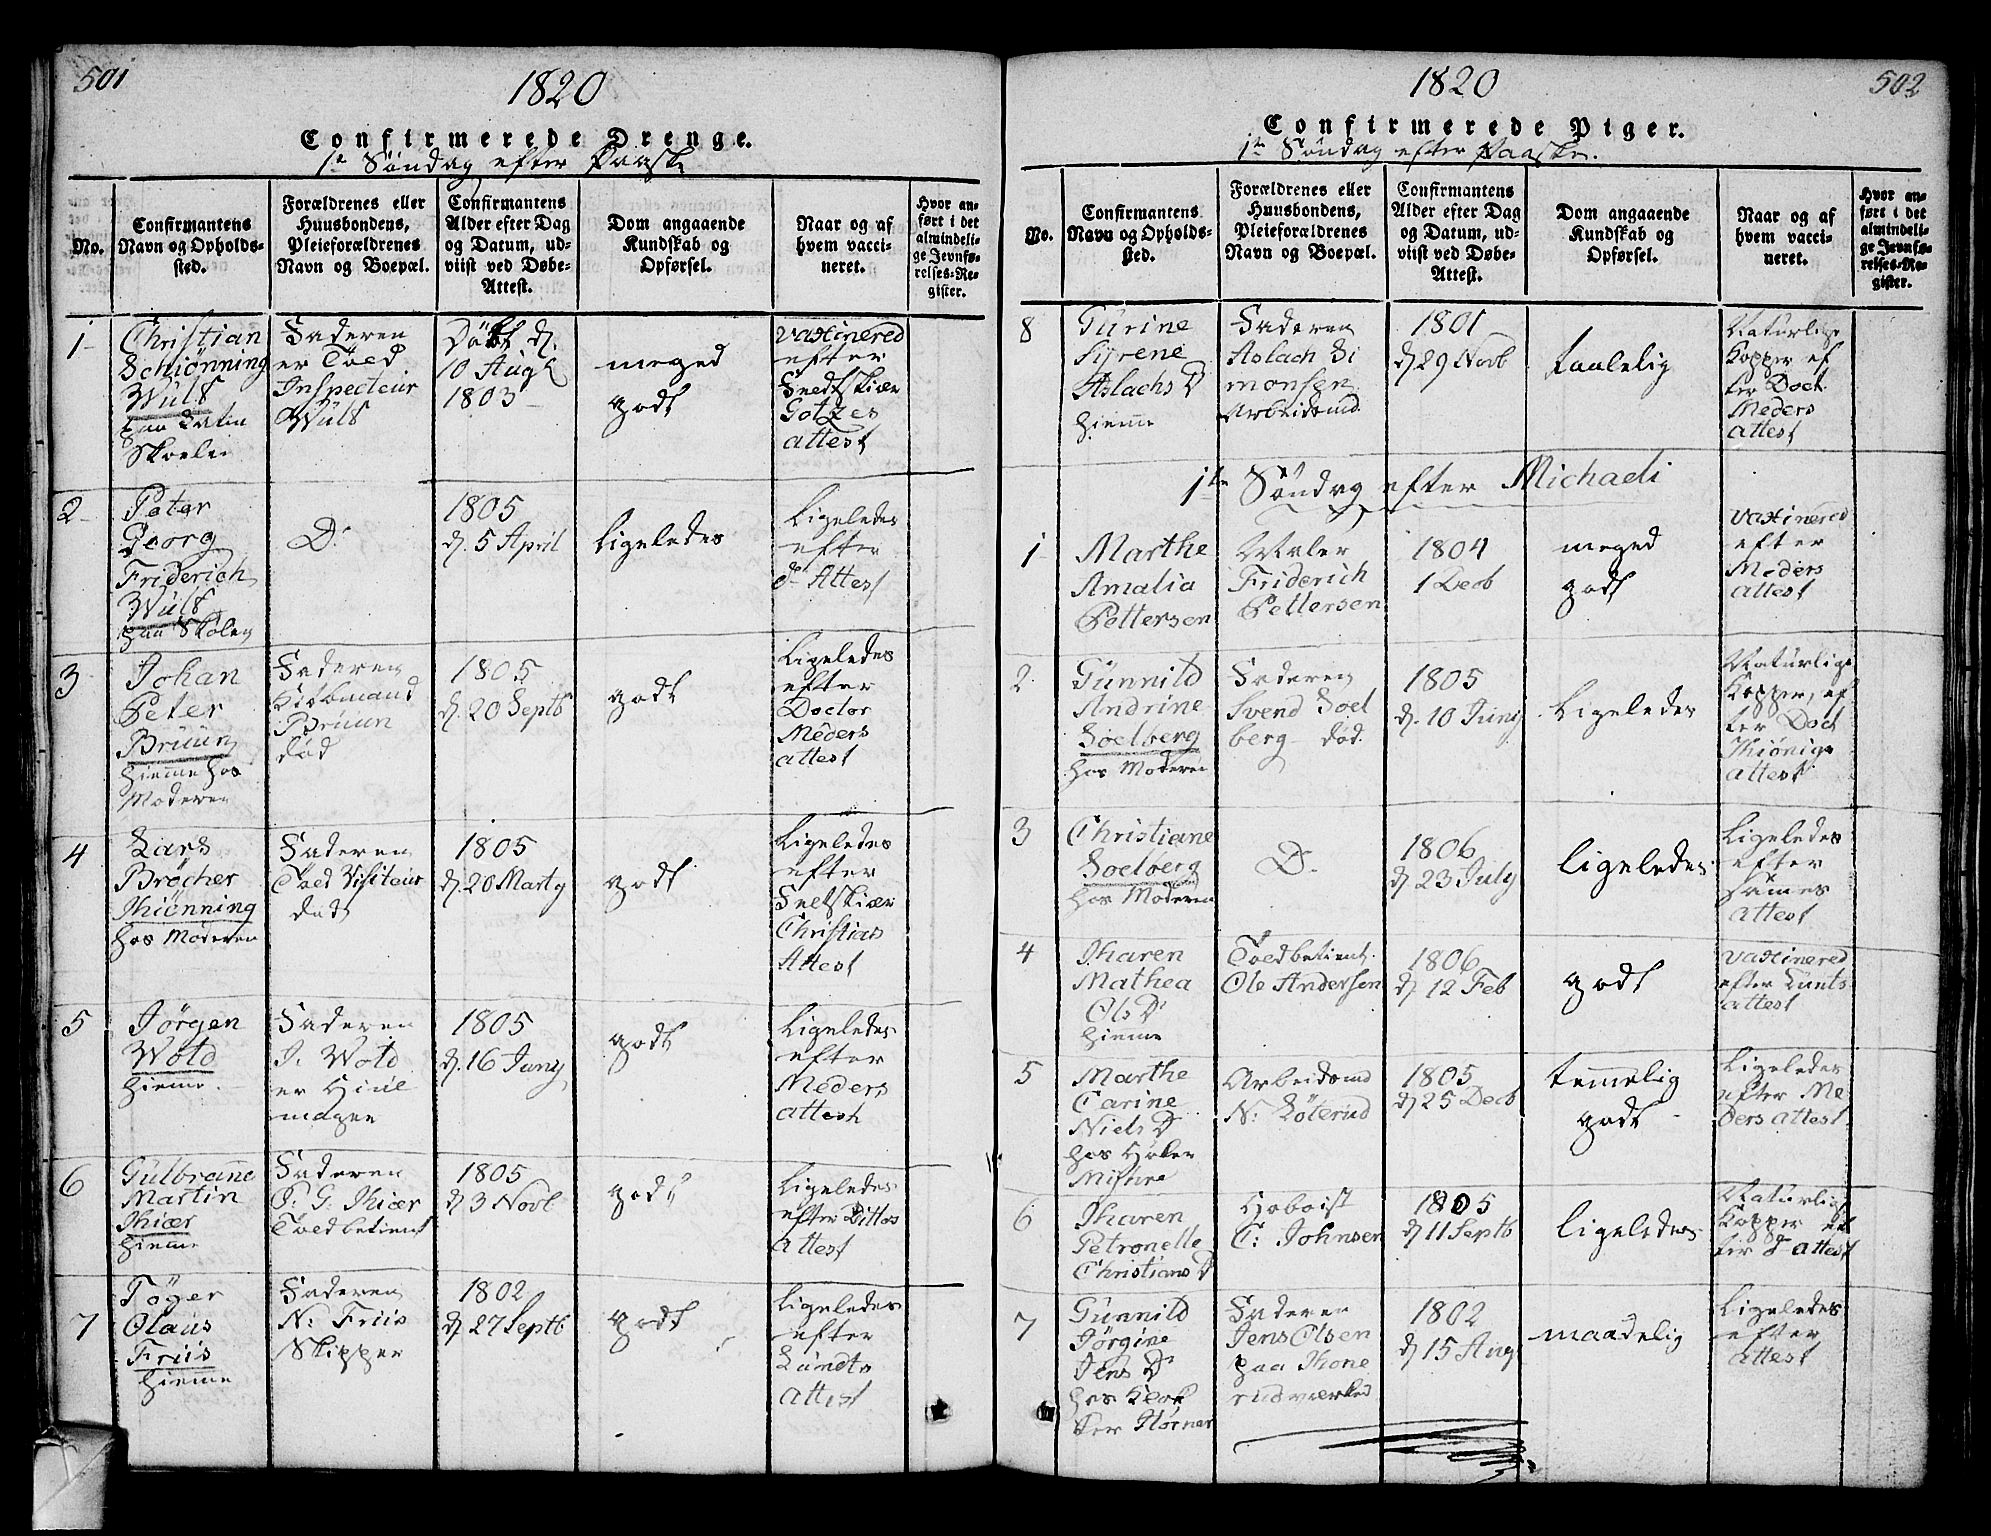 501
1820
Confirmerede Drenge.
1te Søndag efter Paaske
No.
Confirmantens
Navn og Opholds-
sted.
Forældrenes eller
Huusbondens,
Pleieforældrenes
Navn og Boepæl.
Confirmantens
Alder efter Dag
og Datum, ud-
viist ved Døbe-
Attest.
Dom angaaende
Kundskab og
Opførsel.
Naar og af
hvem vacci-
neret.
Hvor an-
ført i det
almindeli-
ge Jevnfø-
relses-Re-
gister.
1
Christian
Schiønning
Wulf
paa Latin
Skoelen
Faderen
er Toed
Inspecteur
Wulf
Døbt d.
10 Aug
1803
meged
godt
vaxinered
efter
Fredskiær
Gotzes
attest
2
Peter
Georg
Friderich
Wulf
paa Skolen
D.
1805
d. 5 April
Ligeledes
Ligeledes
efter
do Attest
3
Johan
Peter
Bruun
hiemme hos
Moderen
Faderen
Kiøbmand
Bruun
død
1805
d. 20 Septb
godt
Ligeledes
efter
Doctor
Meders
attest
4
Lars
Brøcher
Thiønning
hos Moderen
Faderen
Toed Visiteur
død
1805
d. 20 Marty
godt
Ligeledes
efter
Christians
Attest
5
Jørgen
Wold
hiemme
Faderen
J. Wold
er Hiul
mager
1805
d. 16 Juny
godt
Ligeledes
efter
Meders
attest
6
Gulbranne
Martin
Thiær
hiemme
Faderen
P. G. Thiær
Toedbetient
1805
d 3 Novb
godt
Ligeledes
efter Dittos
attest
7
Töger
Olaus
Friis
hiemme
Faderen
N: Friis
Skipper
1802
d. 27 Septb
godt
Ligeledes
efter
Lundts
attest
1820
502
Confirmerede Piger.
1te Søndag efter Paaske.
No.
Confirmantens
Navn og Opholds-
sted.
Forældrenes eller
Huusbondens,
Pleieforældrenes
Navn og Boepæl.
Confirmantens
Alder efter Dag
og Datum, ud-
viist ved Døbe-
Attest.
Dom angaaende
Kundskab og
Opførsel.
Naar og af
hvem vacci-
neret.
Hvor an-
ført i det
almindeli-
ge Jevnfø-
relses-Re-
gister.
8
Gurine
Syrene
Aslachs D
hiemme
Faderen
Aslach Si
monsen
Arbeidsmd
1801
d 29 Novb
taalelig
Naturlige
Kopper ef
ter Doct.
Meders
attest
1te Søndag efter Michaeli
1
Marthe
Amalia
Pettersen
Maler
Friderich
Pettersen
1804
1 Decb
meged
godt
vaxinered
efter
Meders
attest
2
Gunnild
Andrine
Soelberg
hos Moderen
Faderen
Svend Soel
berg død.
1805
d. 10 Juny
Ligeledes
Naturlige
Kopper, ef
ter Doct
Thiønigs
attest
3
Christiane
Soelberg
hos Moderen
D.
1806
d 23 July
ligeledes
Ligeledes
efter
sames
attest
4
Tharen
Mathea
Ols D
hiemme
Toedbetient
Ole Andersen
1806
d. 12 Feb
godt
vaxinered
efter Lunts
attest
5
Marthe
Carine
Niels D
hos Høker
Arbeidsmd
N: Löterud
1805
d 25 Decb
temmelig
godt
Ligeledes
efter Me
ders attest
6
Tharen
Petronelle
Christians D
Hoboist
C: Johnsen
1805
d 11 Septb
ligeledes
Naturlige
Kopper ef
ter D attest
7
Gunnild
Jørgine
Jens D
hos Klok
ker Størner
Faderen
Jens Olsen
paa Thone
rudværked
1802
d 15 Aug
maadelig
Ligeledes
efter
attest